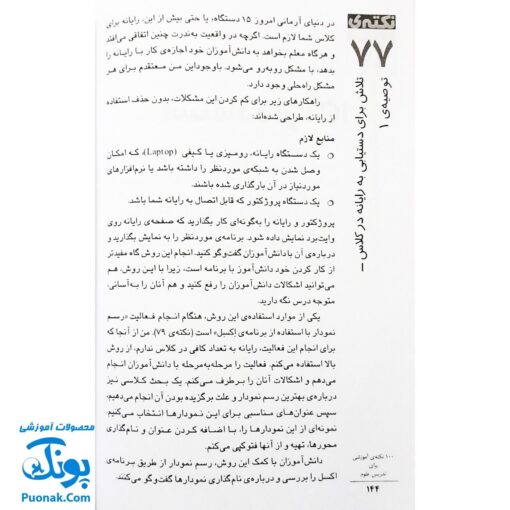 نکته‌ی
۷۷
تلاش برای دستیابی به رایانه در کلاس –
توصیه‌ی ۱
در دنیای آرمانی امروز ۱۵ دستگاه، یا حتی بیش از این، رایانه برای
کلاس شما لازم است. اگرچه در واقعیت به‌ندرت چنین اتفاقی می‌افتد
و هرگاه معلم بخواهد به دانش‌آموزان خود اجازه‌ی کار با رایانه را
بدهد، با مشکل روبه‌رو می‌شود. باوجوداین من معتقدم برای هر
مشکل راه‌حلی وجود دارد.
راهکارهای زیر برای کم کردن این مشکلات، بدون حذف استفاده
از رایانه، طراحی شده‌اند:
منابع لازم
یک دستگاه رایانه، رومیزی یا کیفی (Laptop)، که امکان
وصل شدن به شبکه‌ی موردنظر را داشته باشد یا نرم‌افزارهای
موردنیاز در آن بارگذاری شده باشند.
یک دستگاه پروژکتور که قابل اتصال به رایانه شما باشد.
پروژکتور و رایانه را به‌گونه‌ای کار بگذارید که صفحه‌ی رایانه روی
وایت‌برد نمایش داده شود. برنامه‌ی موردنظر را به نمایش بگذارید و
درباره‌ی آن با دانش‌آموزان گفت‌وگو کنید. انجام این روش گاه مفیدتر
از کار کردن خود دانش‌آموز با برنامه است، زیرا با این روش، هم
می‌توانید اشکالات دانش‌آموزان را رفع کنید و هم آنان را به‌آسانی،
متوجه درس نگه دارید.
یکی از موارد استفاده‌ی این روش، هنگام انجام فعالیت «رسم
نمودار با استفاده از برنامه‌ی اِکسِل» است (نکته‌ی ۷۹). من از آنجا که
برای انجام این فعالیت، رایانه به تعداد کافی در کلاس ندارم، از روش
بالا استفاده می‌کنم. فعالیت را مرحله‌به‌مرحله با دانش‌آموزان انجام
می‌دهم و اشکالات آنان را برطرف می‌کنم. یک بحث کلاسی نیز
درباره‌ی بهترین رسم نمودار و علت برگزیده بودن آن انجام می‌دهم.
سپس عنوان‌های مناسبی برای این نمودارها انتخاب می‌کنیم
نمونه‌ای از این نمودارها را، با اضافه کردن عنوان و نام‌گذاری
محورها، تهیه و از آنها فتوکپی می‌کنم.
دانش‌آموزان با کمک این روش، رسم نمودار از طریق برنامه‌ی
اکسل را بررسی و درباره‌ی نام‌گذاری نمودارها گفت‌وگو می‌کنند.
۱۰۰ نکته‌ی آموزشی
برای
تدریس علوم
۱۴۴
محصولات آموزشی
پونک
Puonak.Com